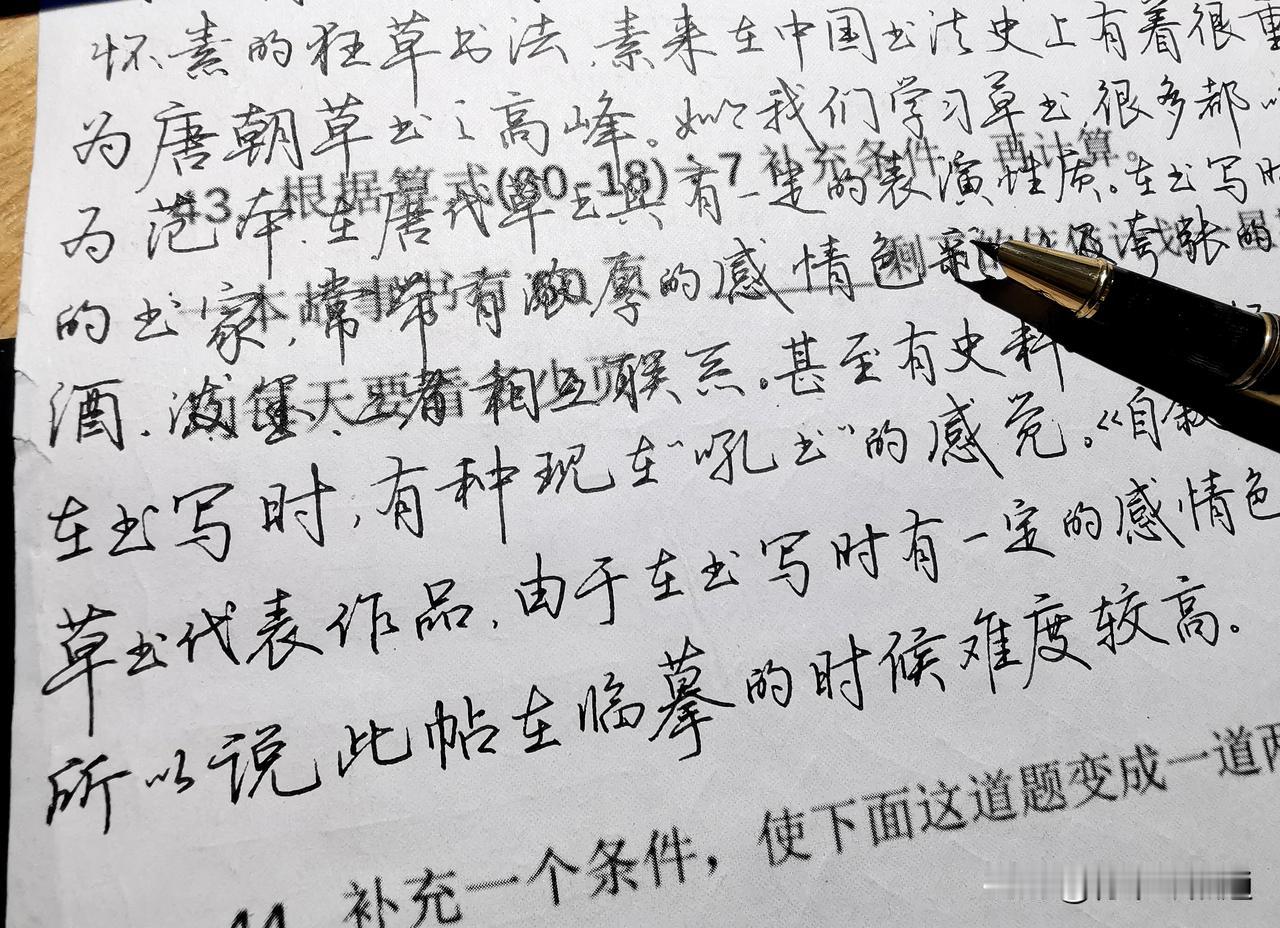 怀素的狂草书法,素来在中国书法史上有着很重
为唐朝草书之高峰。如今我们学习草书,很多都以
43 根据算式(90-18)÷7 补充条件,再计算。
为范本,在唐代草书具有一定的表演性质。在书写时
的书家,常带有浓厚的感情色彩 夸张的
一本故事书有
酒、泼墨、二者相互联系。甚至有史料
每天要看
在书写时,有种现在“吼书”的感觉。《自叙
草书代表作品,由于在书写时有一定的感情色
所以说此帖在临摹的时候难度较高。
44 补充一个条件,使下面这道题变成一道两